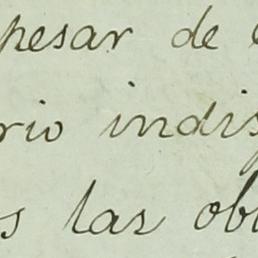 pesar de
rio indis
s las ob